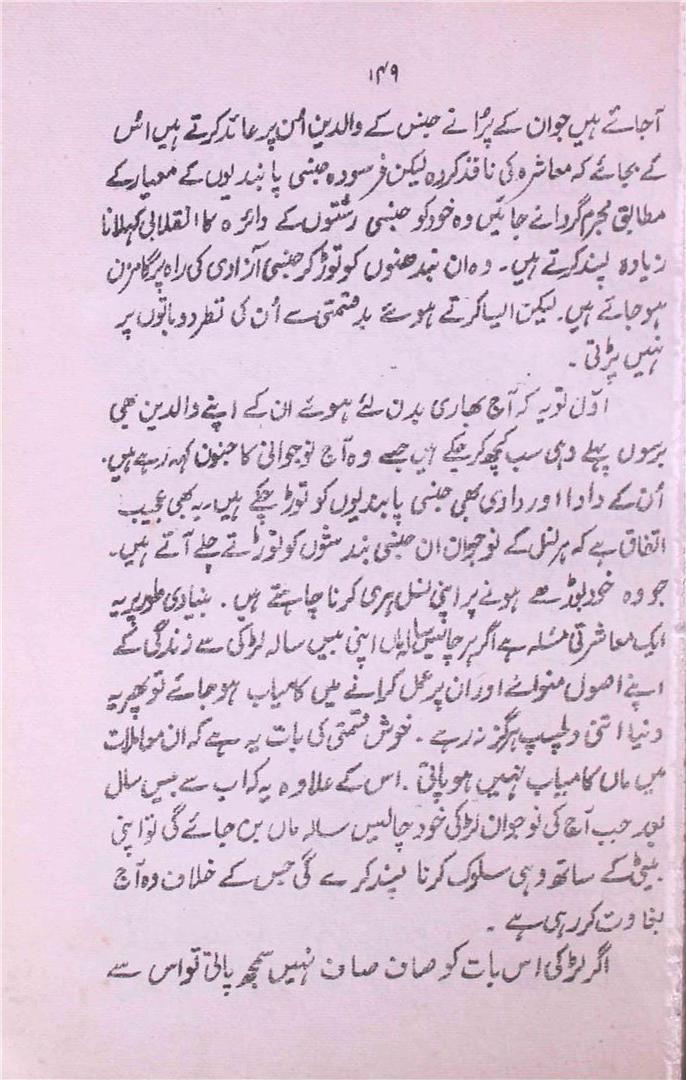 ۱۴۹
آجاتے ہیں جو ان کے پرانے جنس کے والدین اُن پر عائد کرتے ہیں اس
کے بجائے کہ معاشرہ کی نافذ کردہ لیکن فرسودہ جنسی پابندیوں کے معیار کے
مطابق مجرم گردانے جائیں وہ خود کو جنسی رشتوں کے دائرہ کا انقلابی کہلانا
زیادہ پسند کرتے ہیں۔ وہ ان بندھنوں کو توڑ کر جنسی آزادی کی راہ پر گامزن
ہو جاتے ہیں۔ لیکن ایسا کرتے ہوئے بدقسمتی سے اُن کی نظر دو باتوں پر
نہیں پڑتی۔
اوّل تو یہ کہ آج بھاری بدن لئے ہوئے ان کے اپنے والدین بھی
برسوں پہلے وہی سب کچھ کر چکے ہیں جسے وہ آج نوجوانی کا جنون کہہ رہے ہیں۔
اُن کے دادا اور دادی بھی جنسی پابندیوں کو توڑ چکے ہیں۔ یہ بھی عجیب
اتفاق ہے کہ ہر نسل کے نوجوان ان جنسی بندشوں کو توڑتے چلے آتے ہیں۔
جو وہ خود بوڑھے ہونے پر اپنی نسل پر جاری کرنا چاہتے ہیں۔ بنیادی طور پر یہ
ایک معاشرتی مسئلہ ہے اگر ہر چالیس سالہ ماں اپنی بیس سالہ لڑکی سے زندگی کے
اپنے اصول منوانے اور ان پر عمل کرانے میں کامیاب ہو جائے تو پھر یہ
دنیا اتنی دلچسپ ہرگز نہ رہے۔ خوش قسمتی کی بات یہ ہے کہ ان معاملات
میں ماں کامیاب نہیں ہو پاتی۔ اس کے علاوہ یہ کہ اب سے بیس سال
بعد جب آج کی نوجوان لڑکی خود چالیس سالہ ماں بن جائے گی تو اپنی
بیٹی کے ساتھ وہی سلوک کرنا پسند کرے گی جس کے خلاف وہ آج
بغاوت کر رہی ہے۔
اگر لڑکی اس بات کو صاف صاف نہیں سمجھ پاتی تو اس سے